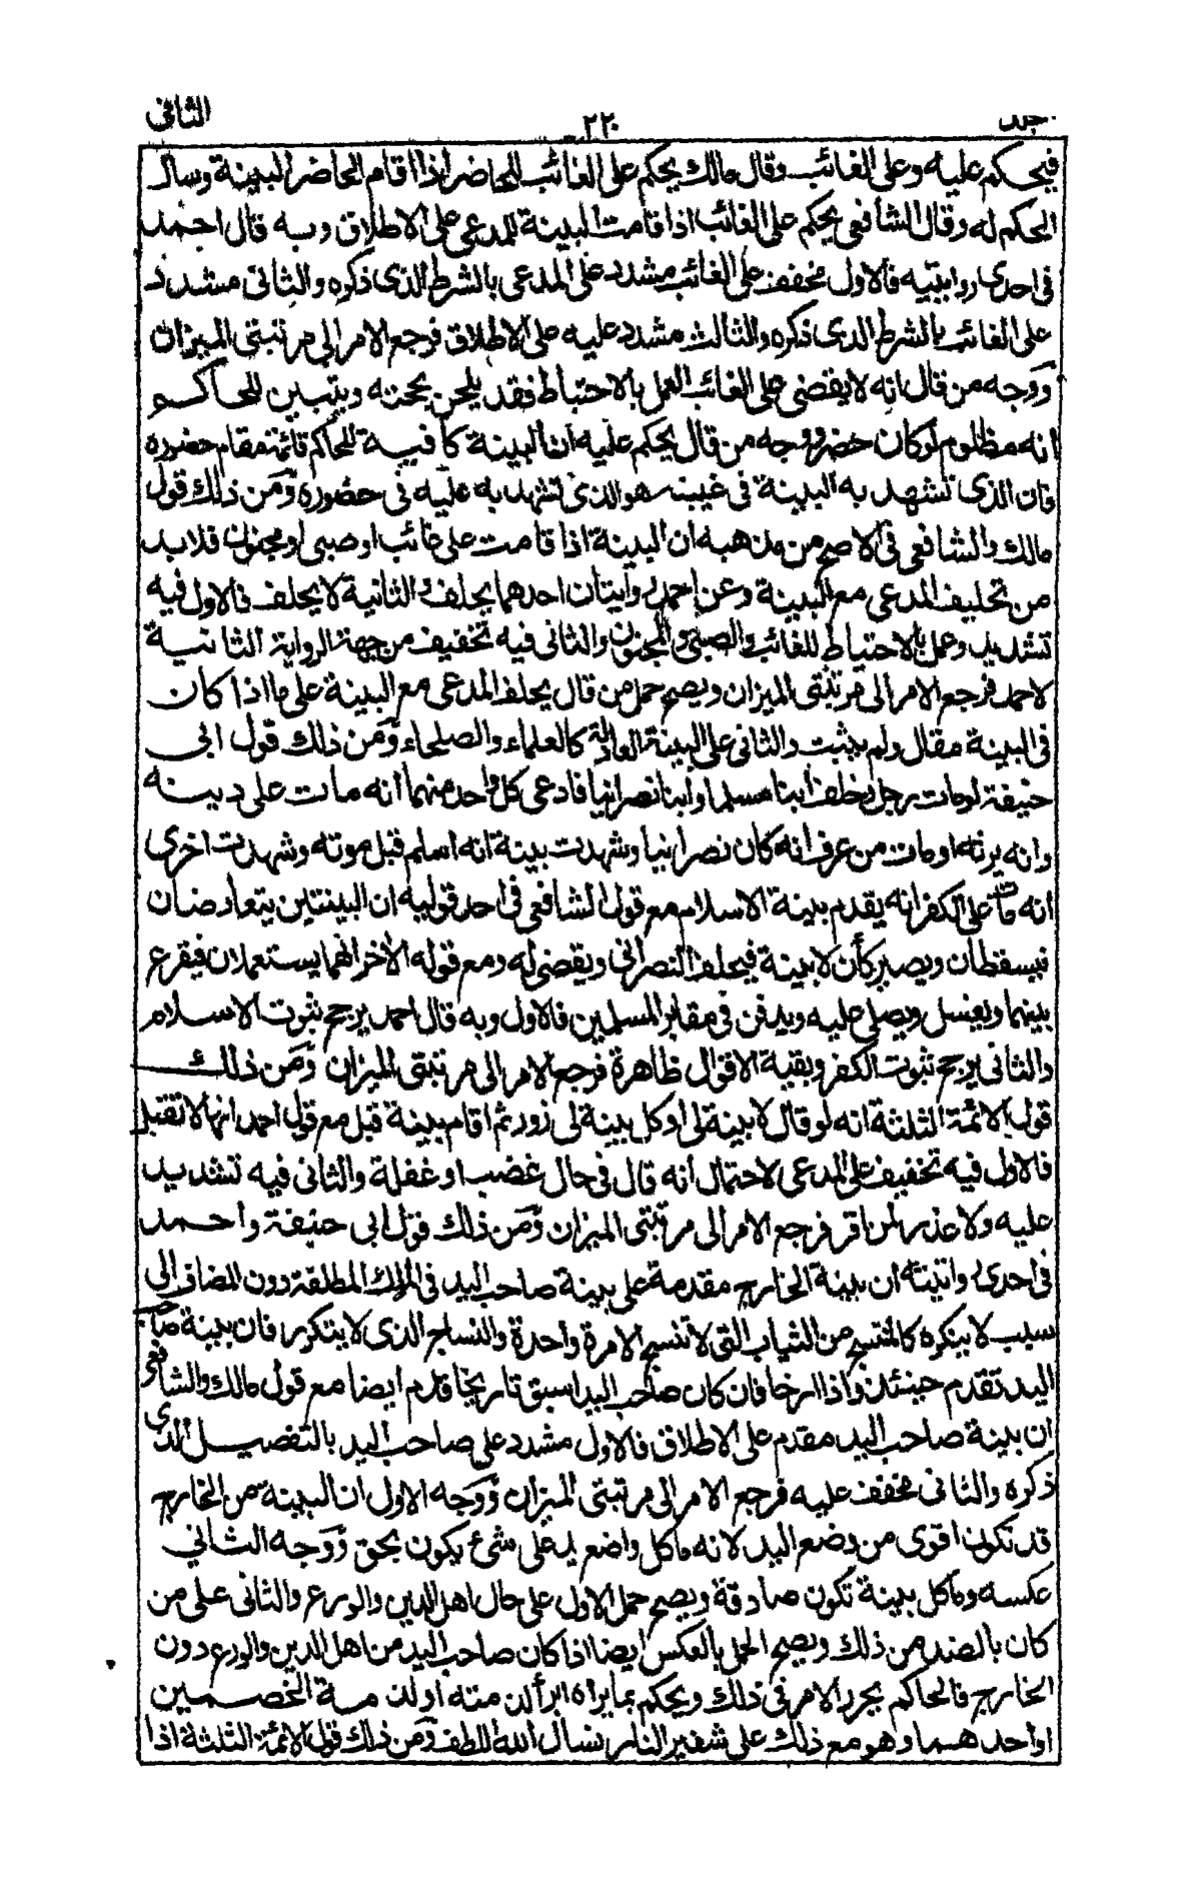 جلد ٢٢٠ الثانى
فيحكم عليه وعلى الغائب وقال مالك يحكم على الغائب للحاضر اذا اقام الحاضر البينة وسأل
الحكم له وقال الشافعى يحكم على الغائب اذا قامت البينة للمدعى على الاطلاق وبه قال احمد
فى احدى روايتيه فالاول مخفف على الغائب مشدد على المدعى بالشرط الذى ذكره والثانى مشدد
على الغائب بالشرط الذى ذكره والثالث مشدد عليه على الاطلاق فرجع الامر الى مرتبتى الميزان
ووجه من قال انه لا يقضى على الغائب العمل بالاحتياط فقد يلحن بحجته ويتبين للحاكم
انه مظلوم لو كان حضر ووجه من قال يحكم عليه ان البينة كافية للحاكم قائمة مقام حضوره
فان الذى تشهد به البينة فى غيبته هو الذى تشهد به عليه فى حضوره ومن ذلك قول
مالك والشافعى فى الاصح من مذهبه ان البينة اذا قامت على غائب او صبى او مجنون فلا بد
من تحليف المدعى مع البينة وعن احمد روايتان احدهما يحلف والثانية لا يحلف فالاول فيه
تشديد وعمل بالاحتياط للغائب والصبى والمجنون والثانى فيه تخفيف من جهة الرواية الثانية
لاحمد فرجع الامر الى مرتبتى الميزان ويصح حمل من قال يحلف المدعى مع البينة على ما اذا كان
فى البينة مقال ولم يثبت والثانى على البينة العادلة كالعلماء والصلحاء ومن ذلك قول ابى
حنيفة لو مات رجل وخلف ابنا مسلما وابنا نصرانيا فادعى كل واحد منهما انه مات على دينه
وانه يرثه او مات من عرف انه كان نصرانيا وشهدت بينة انه اسلم قبل موته وشهدت اخرى
انه مات على الكفر انه يقدم بينة الاسلام مع قول الشافعى فى احد قوليه ان البينتين يتعارضان
فيسقطان ويصير كأن لا بينة فيحلف النصرانى ويقضى له ومع قوله الأخر انهما يستعملان فيقرع
بينهما ويغسل ويصلى عليه ويدفن فى مقابر المسلمين فالاول وبه قال احمد يرجح ثبوت الاسلام
والثانى يرجح ثبوت الكفر وبقية الاقوال ظاهرة فرجع الامر الى مرتبتى الميزان ومن ذلك
قول الائمة الثلثة انه لو قال لا بينة لى او كل بينة لى زور ثم اقام بينة قبل مع قول احمد انها لا تقبل
فالاول فيه تخفيف على المدعى لاحتمال أنه قال فى حال غضب او غفلة والثانى فيه تشديد
عليه ولا عذر لمن اقر فرجع الامر الى مرتبتى الميزان ومن ذلك قول ابى حنيفة وأحمد
فى احدى روايتيه أن بينة الخارج مقدمة على بينة صاحب اليد فى الملك المطلقة دون المضاف الى
سبب لا يتكرر كالمنتسج من الثياب التى لا تنسج الا مرة وأحدة والنساج الذى لا يتكرر فان بينة صاحب
اليد تقدم حينئذ واذا ارخا فان كان صاحب اليد اسبق تاريخا قدم ايضا مع قول مالك والشافعى
ان بينة صاحب اليد مقدم على الاطلاق فالاول مشدد على صاحب اليد بالتفصيل الذى
ذكره والثانى مخفف عليه فرجع الامر الى مرتبتى الميزان ووجه الاول ان البينة من الخارج
قد تكون اقوى من وضع اليد لانه ما كل واضع يد على شئ يكون بحق ووجه الثانى
عكسه وما كل بينة تكون صادقة ويصح حمل الاول على حال اهل الدين والورع والثانى على من
كان بالضد من ذلك ويصح الحمل بالعكس ايضا اذا كان صاحب اليد من اهل الدين والورع دون
الخارج فالحاكم يحرر الامر فى ذلك ويحكم بما يراه ابرأ لذمته أو لذمة الخصمين
او أحدهما وهو مع ذلك على شفير النار نسأل الله اللطف ومن ذلك قول الائمة الثلثة اذا